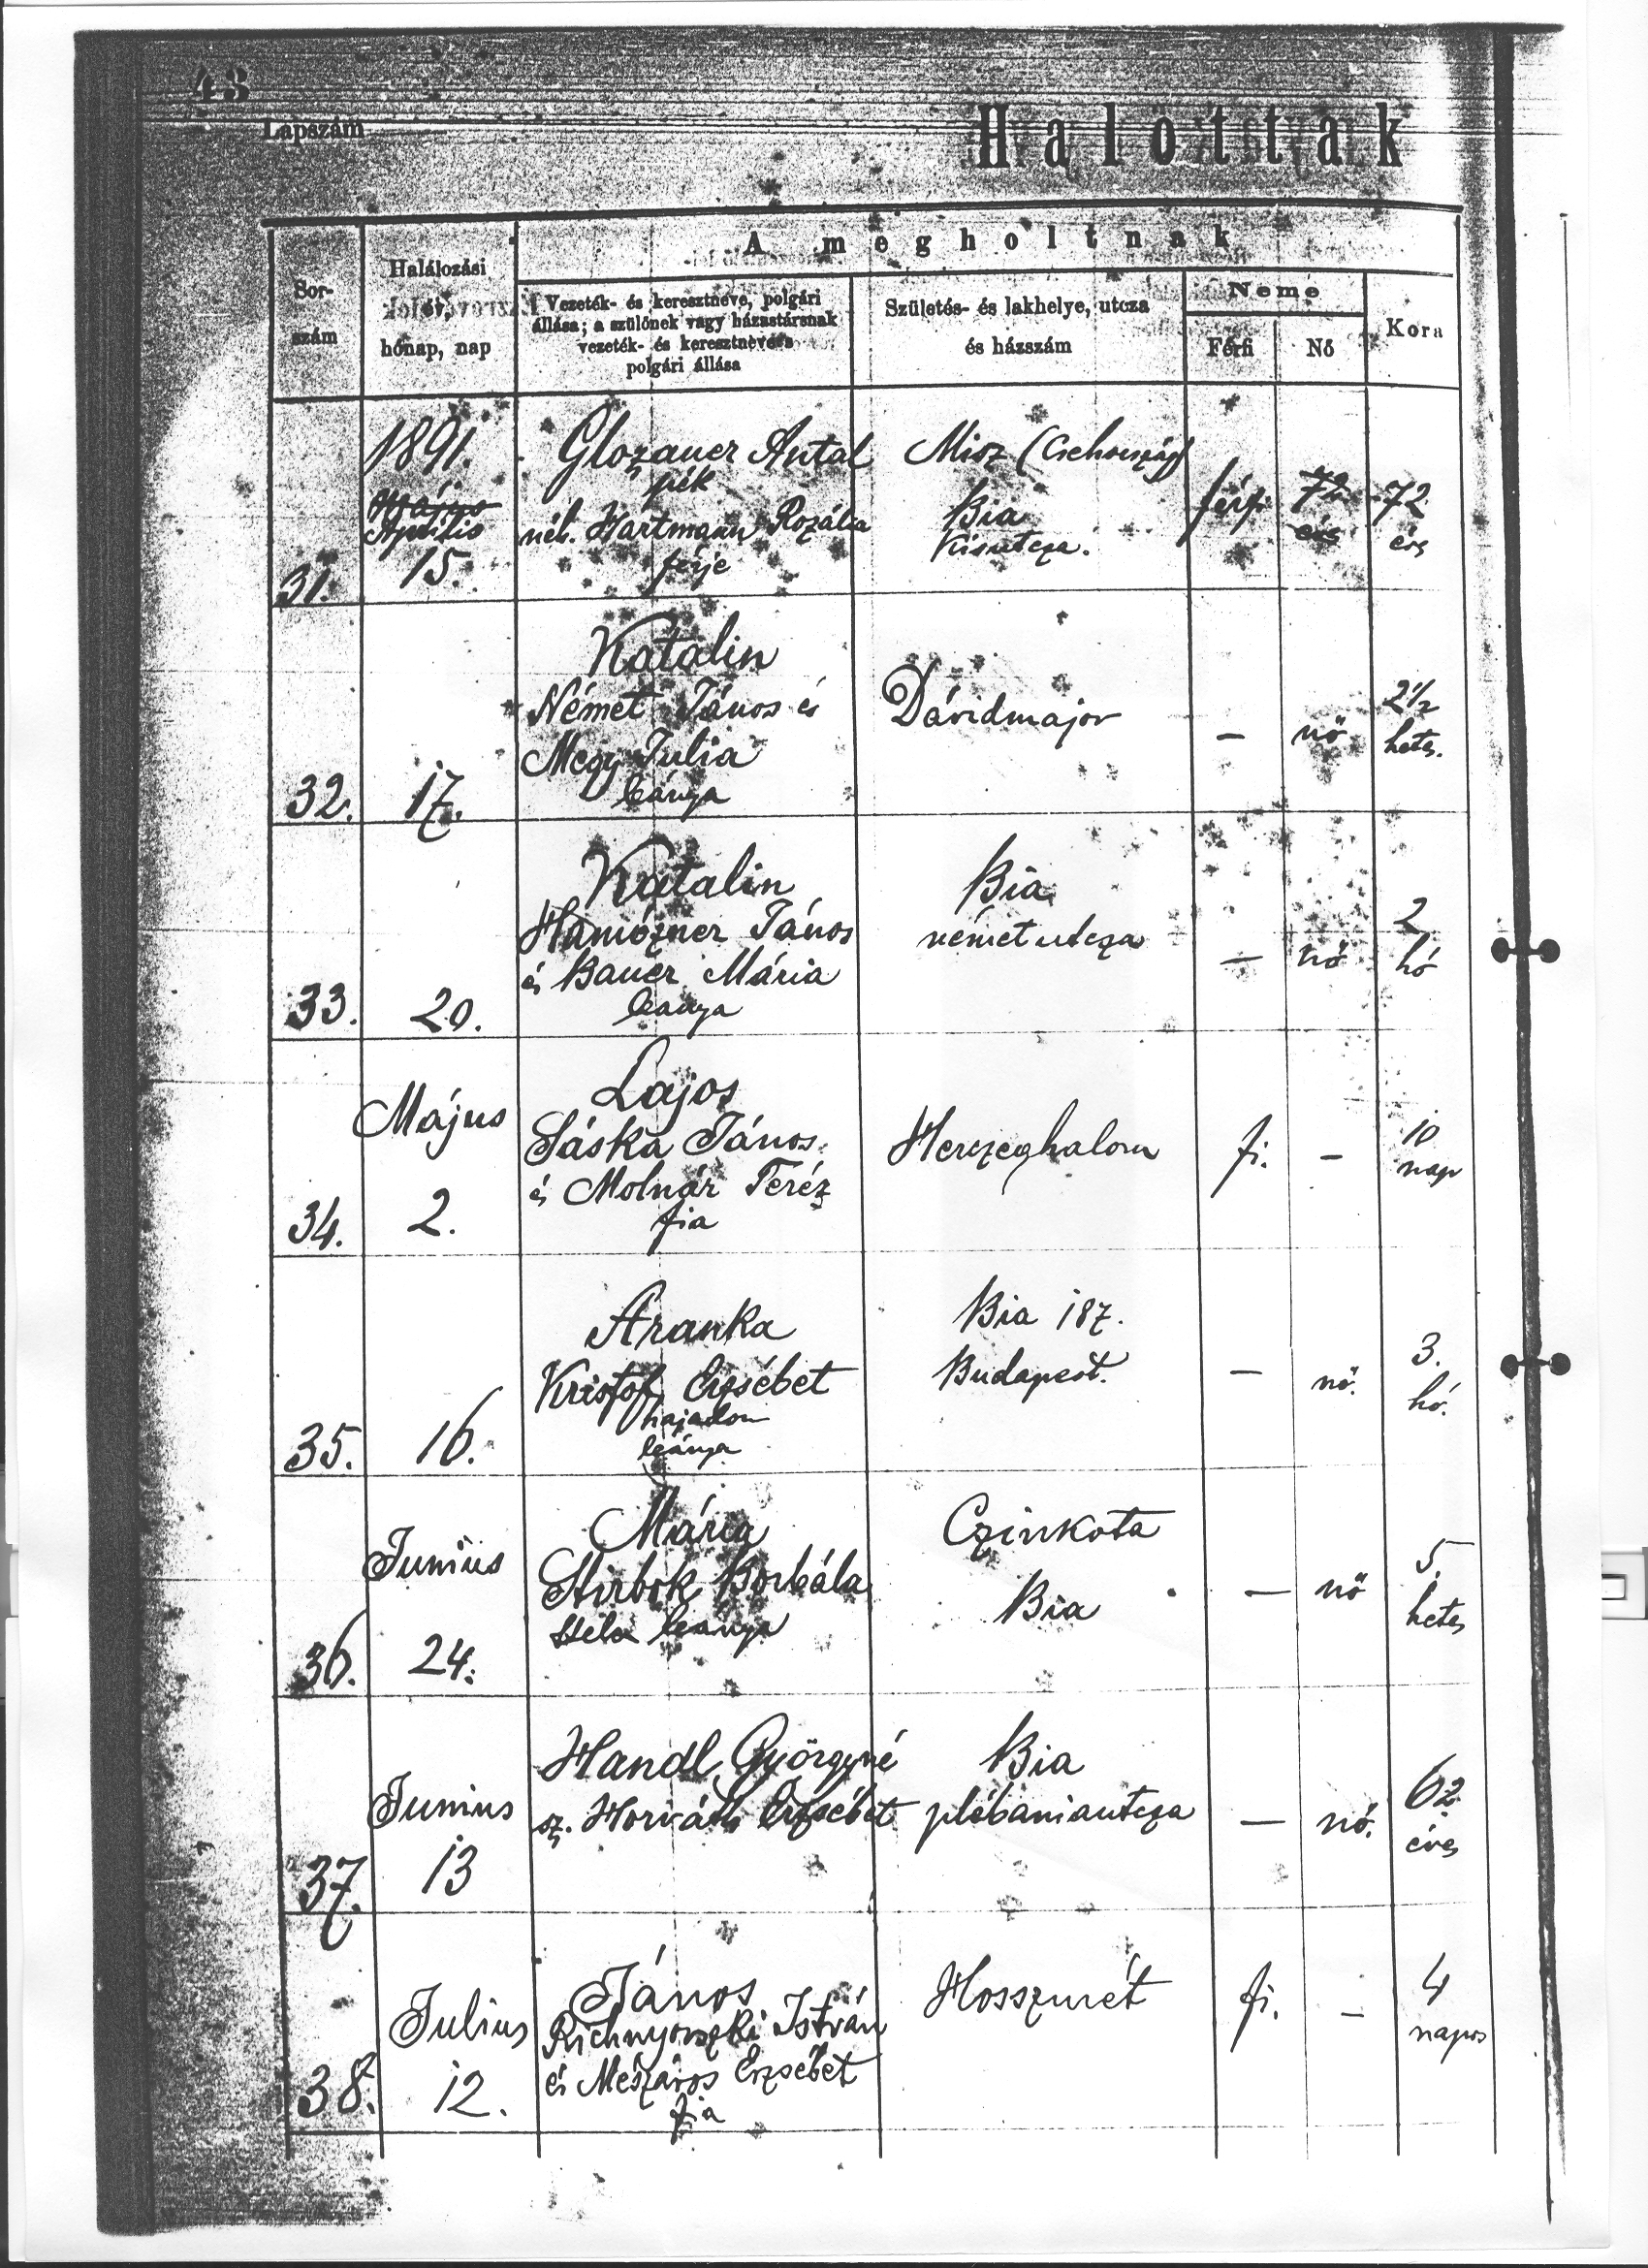 43
Lapszám
Halottak
A megholtnak
Sor-
szám
Halálozási
hónap, nap
Vezeték- és keresztneve, polgári
állása; a szülőnek vagy házastársnak
vezeték- és keresztneve s
polgári állása
Születés- és lakhelye, utcza
és házszám
Neme
Férfi
Nő
Kora
31.
1891.
Május
Április
15.
Glozauer Antal
pék
néh. Hartmann Rozália
férje
Misz (Csehország)
Bia
Kisutcza.
férfi
72
éves
72
éves
32.
17.
Katalin
Német János és
Megy Julia
leánya
Dávidmajor
—
nő
2 1/2
hetes.
33.
20.
Katalin
János
és Bauer Mária
leánya
Bia
német utcza
—
nő
2
hó
34.
Május
2.
Lajos
Sáska János
és Molnár Teréz
fia
Herczeghalom
fi.
—
10
nap
35.
16.
Aranka
Kristóf Erzsébet
hajadon
leánya
Bia 187.
Budapest.
—
nő.
3.
hó.
36.
Junius
24.
Mária
Borbála
leánya
Czinkota
Bia
—
nő
5.
hetes
37.
Junius
13
Handl Györgyné
sz. Horváth Erzsébet
Bia
plébániautcza
—
nő.
62
éves
38.
Julius
12.
János
István
és Mészáros Erzsébet
fia
Hosszurét
fi.
—
4
napos